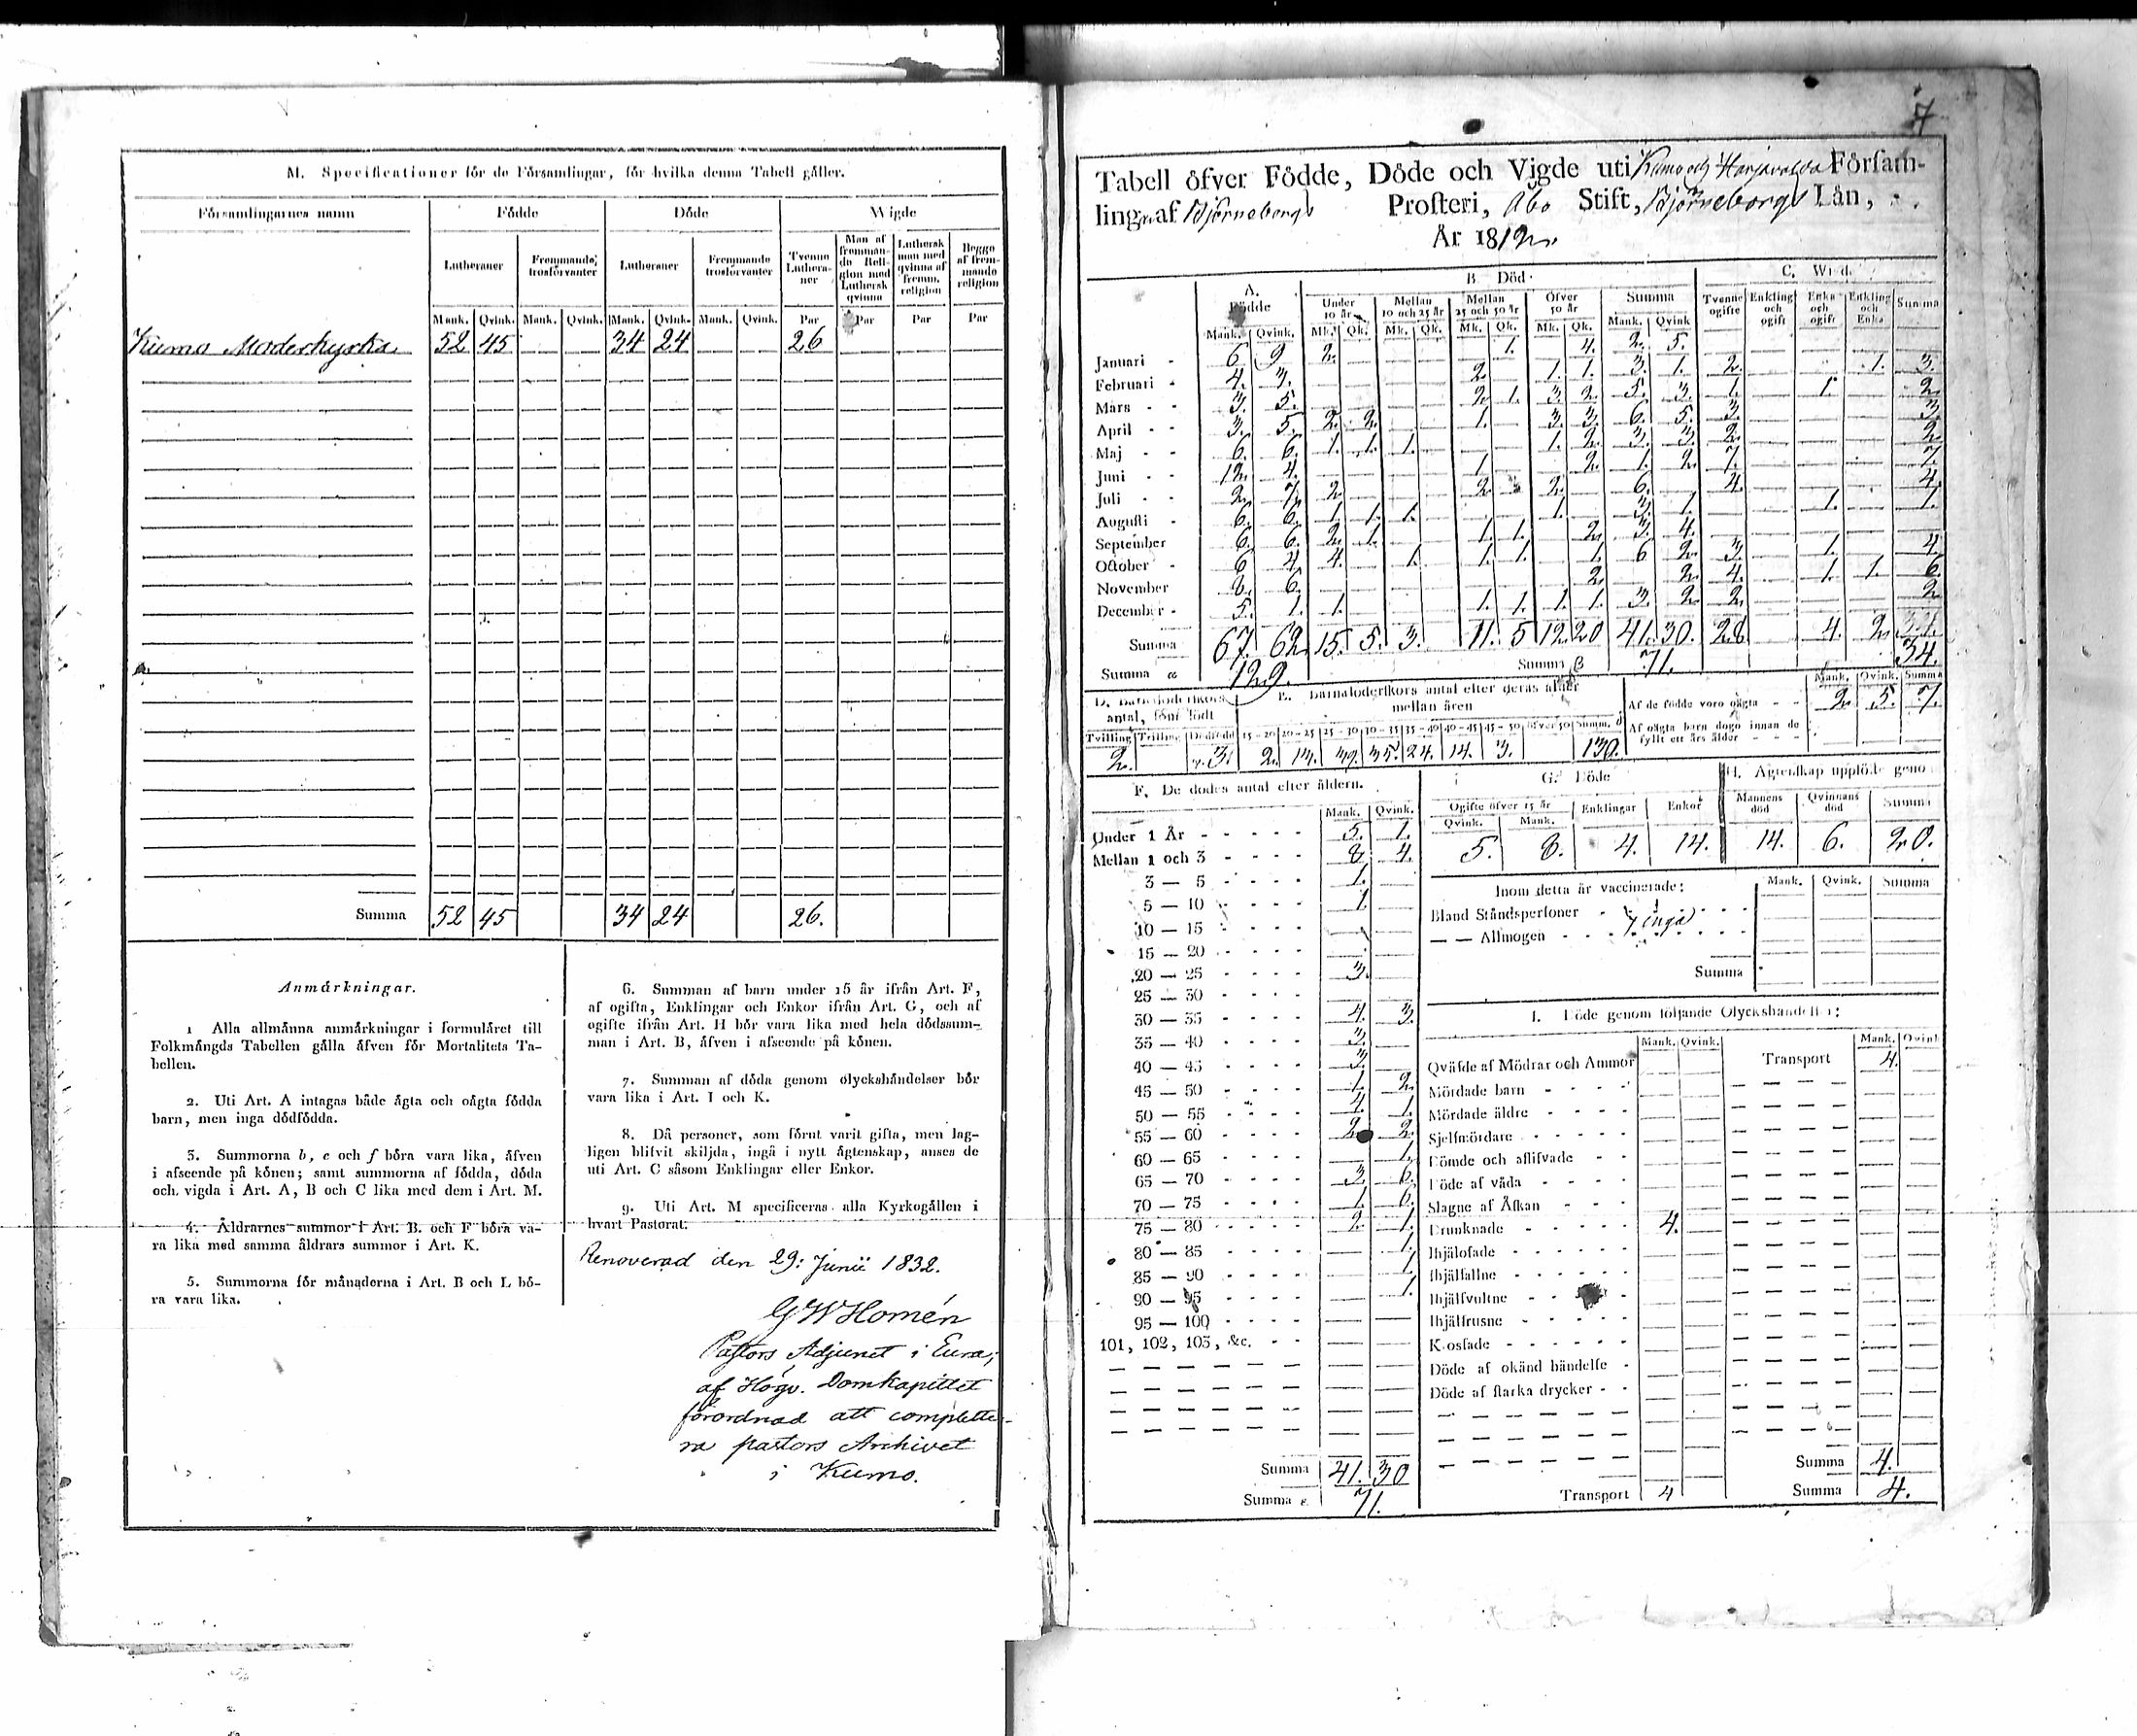 M. Specificationer för de Församlingar, för hvilka denna Tabell gäller.
Församlingarnes namn Födde Döde Wigde
Lutheraner Fremmande trosförvanter Lutheraner Fremmande trosförvanter Tvenne Lutheraner Man af fremmande Religion med Luthersk qvinna Luthersk man med qvinna af fremm. religion Begge af fremmande religion
Mank. Qvink. Mank. Qvink. Mank. Qvink. Mank. Qvink. Par Par Par Par
Kumo Moderkyrka 52 45 34 24 26
Summa 52 45 34 24 26.
Anmärkningar.
1 Alla allmänna anmärkningar i formuläret till
Folkmängds Tabellen gälla äfven för Mortalitets Ta-
bellen.
2. Uti Art. A intagas både ägta och oägta födda
barn, men inga dödfödda.
3. Summorna b, e och f böra vara lika, äfven
i afseende på könen; samt summorna af födda, döda
och vigda i Art. A, B och C lika med dem i Art. M.
4. Åldrarnes summor i Art. B. och F böra va-
ra lika med samma åldrars summor i Art. K.
5. Summorna för månaderna i Art. B och L bö-
ra vara lika.
6. Summan af barn under 15 år ifrån Art. F,
af ogifta, Enklingar och Enkor ifrån Art. G, och af
ogifte ifrån Art. H bör vara lika med hela dödssum-
man i Art. B, äfven i afseende på könen.
7. Summan af döda genom olyckshändelser bör
vara lika i Art. I och K.
8. Då personer, som förut varit gifta, men lag-
ligen blifvit skiljda, ingå i nytt ägtenskap, anses de
uti Art. C såsom Enklingar eller Enkor.
9. Uti Art. M specificeras alla Kyrkogällen i
hvart Pastorat.
Renoverad den 29: Junii 1832.
G W Homén
Pastors Adjunct i Eura,
af Högv. Domkapitlet
förordnad att complette-
ra pastors Archivet
i Kumo.
7
Tabell öfver Födde, Döde och Vigde uti Kumo och Harjavalda Församl-
ling af Björneborgs Prosteri, Åbo Stift, Björneborgs Län,
År 1812.
A. Födde B. Död C. Wigde
Under 10 år Mellan 10 och 25 år Mellan 25 och 50 år Öfver 50 år Summa Tvenne ogifte Enkling och ogift Enka och ogift Enkling och Enka Summa
Mank. Qvink. Mk. Qk. Mk. Qk. Mk. Qk. Mk. Qk. Mank. Qvink
Januari 6. 9 2. 1. 4. 2. 5.
Februari 4. 3. 2. 1. 1. 3. 1. 2. 1. 3.
Mars 3. 5. 2. 1. 3. 2. 5. 3. 1. 1. 2.
April 3. 5. 2. 2. 1. 3. 3. 6. 5. 3. 3.
Maj 6. 6. 1. 1. 1. 1. 2. 3. 3. 2. 2.
Juni 12. 4. 1. 2. 1. 2. 7. 7.
Juli 2. 7. 2. 2. 2. 6. 4. 4.
Augusti 6. 6. 1. 1. 1. 1. 3. 1. 1. 1.
September 6. 6. 2. 1. 1. 1. 2. 3. 4.
October 6 4. 4. 1. 1. 1. 1. 6 2. 3. 1. 4.
November 8. 6. 2. 2. 4. 1. 1. 6.
December 5. 1. 1. 1. 1. 1. 1. 3. 2. 2. 2
Summa 67. 62. 15. 5. 3. 11. 5 12. 20 41. 30. 28 4. 2.
34.
Summa α 129. Summa β 71.
D. Barnaföderskors antal, som födt E. Barnaföderskors antal efter deras ålder mellan åren
Tvilling Trilling Dödfödd 15-20 20-25 25-30 30-35 35-40 40-45 45-50 öfver 50 Summ.
2. 3. 2. 13. 39. 35. 24. 14. 3. 130.
Mank. Qvink. Summa
Af de födde voro oägta 2. 5. 7.
Af oägta barn dogo innan de
fyllt ett års ålder
F. De dödes antal efter åldern.
Mank. Qvink.
Under 1 År 5. 1.
Mellan 1 och 3 8. 4.
3 — 5 1.
5 — 10 1.
10 — 15
15 — 20
20 — 25 3.
25 — 30
30 — 35 4. 3.
35 — 40 3.
40 — 45 3.
45 — 50 1. 2.
50 — 55 4. 1.
55 — 60 2. 2.
60 — 65 1.
65 — 70 3. 6.
70 — 75 1. 6.
75 — 80 2. 1.
80 — 85 1.
85 — 90 1
90 — 95 1.
95 — 100
101, 102, 103, &c.
Summa 41. 30
Summa ε 71.
G. Döde H. Ägtenskap upplöste geno
Ogifte öfver 15 år Enklingar Enkor Mannens död Qvinnans död Summa
Qvink. Mank.
5. 8. 4. 14. 14. 6. 20.
Inom detta år vaccinerade: Mank. Qvink. Summa
Bland Ståndspersoner
— — Allmogen
inga
Summa
I. Döde genom följande Olyckshändelser:
Mank. Qvink. Mank. Qvink
Qväfde af Mödrar och Ammor Transport 4.
Mördade barn
Mördade äldre
Sjelfmördare
Dömde och aflifvade
Döde af våda
Slagne af Åskan
Drunknade 4.
Ihjälofade
Ihjälfallne
Ihjälfvultne
Ihjälfrusne
Kosfade
Döde af okänd händelse
Döde af starka drycker
Summa 4.
Transport 4 Summa 4.